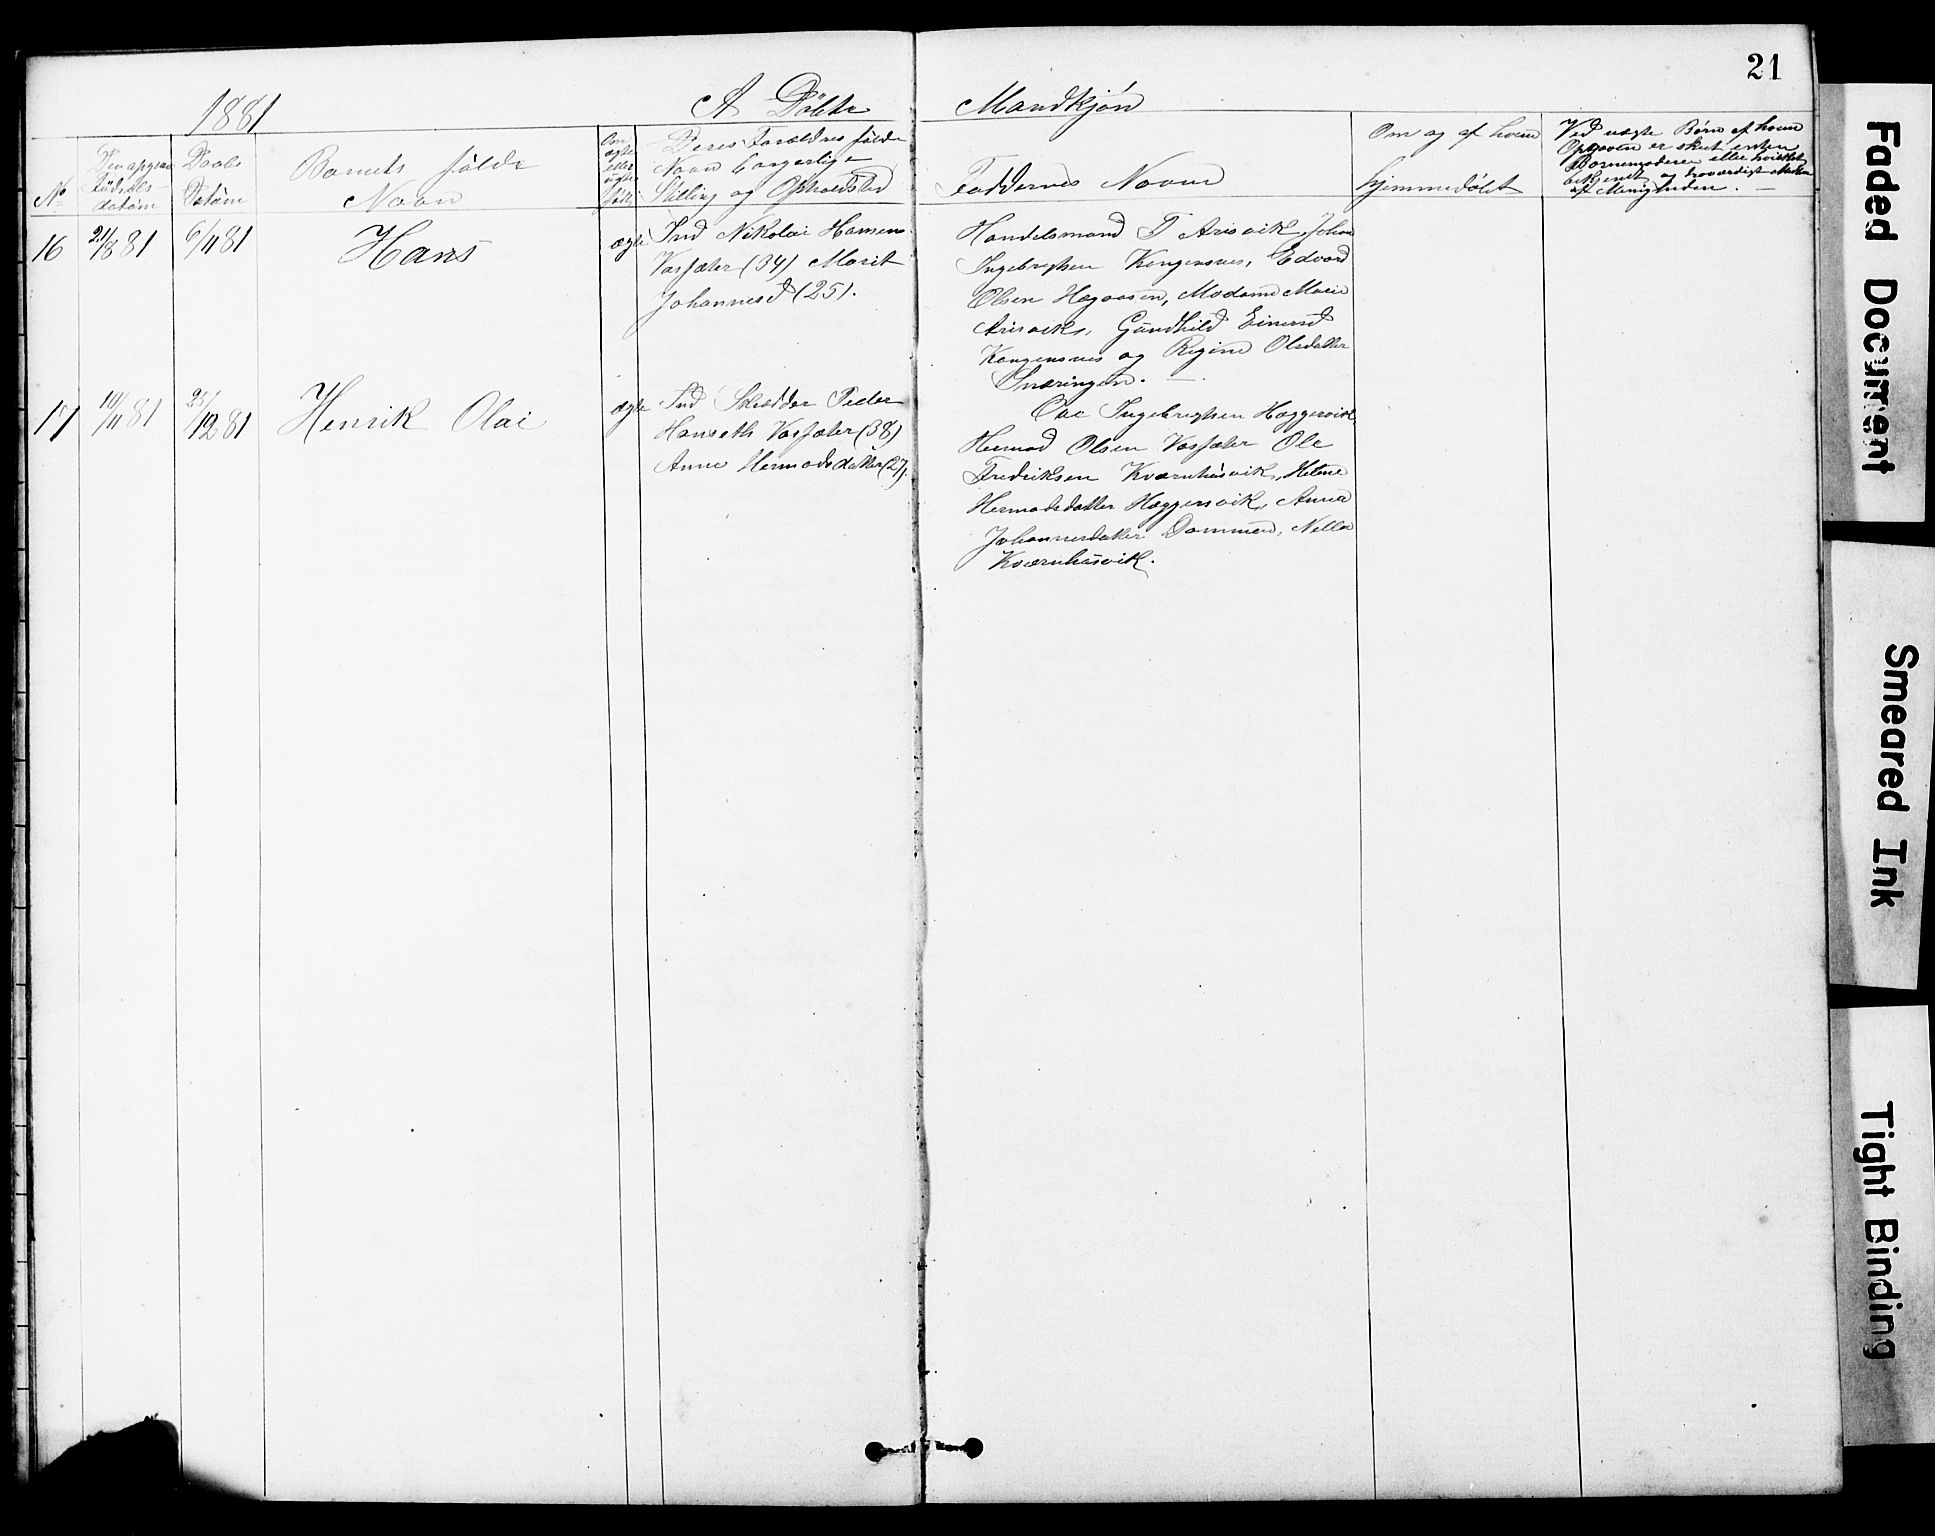 21
1881
A Döbte
Mandkjön
No
Den opgivne Födsels-datum
Daabs Datum
Barnets fulde
Navn
Om ægte eller uægte född
Deres Forældres fulde
Navn borgerlige
Stilling og Opholdsted
Faddernes Navne
Om og af hvem
hjemmedöbt
Ved uægte Börn af hvem
Opgaven er skeet enten
Barnemoderen eller hvilket
bekjendt og troværdigt Medlem
af Menigheden. —
16
21/8 81
6/11 81
Hans
ægte
Ind Nikolai Hansen
Vasfæter (34) Marit
Johannesd (25).
Handelsmand T Arisvik, Johan
Ingebregtsen Kongensvei, Edvard
Olsen Hagaasen, Madame Marie
Arisvik, Gundhild Einersd
Kongensvei og Regine Olsdatter
Snæringen. —
17
10/11 81
25/12 81
Henrik Olai
ægte
Ind Skrædder Peder
Hanseth Vasfæter (38)
Anne Hermodsdatter (27).
Ole Ingebregtsen Hæggersvik,
Hermod Olsen Vasfæter Ole
Fredriksen Kværnhusvik, Helene
Hermodsdatter Hæggersvik, Anna
Johannesdatter Dommen, Nella
Kværnhusvik.
Faded Document
Smeared Ink
Tight Binding